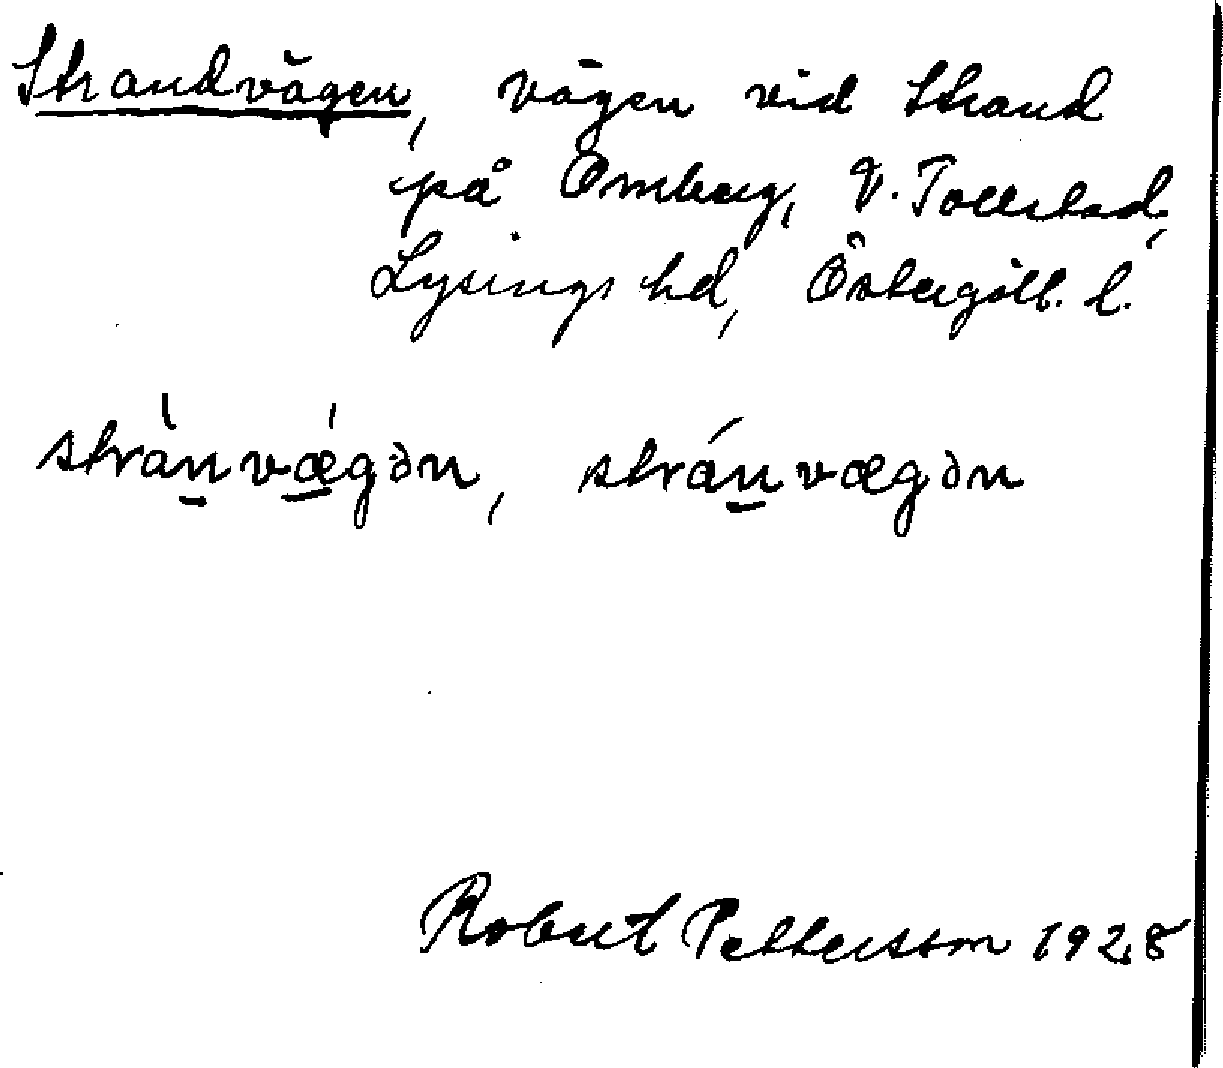 Strandvägen, vägen vid Strand
på Omberg, V. Tollstad,
Lysings hd, Östergötl. l.
stràn̠vǽ̠gən, strán̠vægən
Robert Pettersson 1928